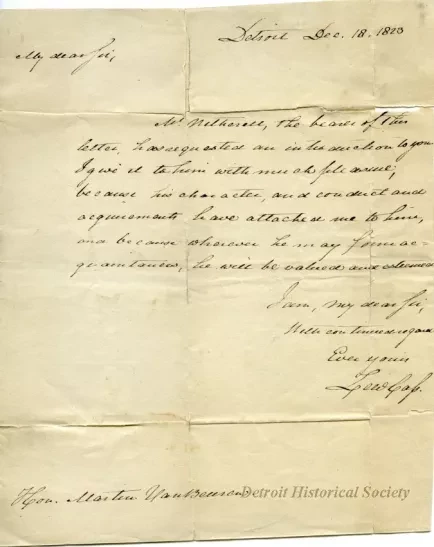 Detroit Dec. 18. 1823
My dear Sir,
Mr Witherell, the bearer of this
letter, has requested an introduction to you
I give it to him with much pleasure,
because his character, and conduct and
acquirements have attached me to him,
and because wherever he may form ac-
quaintances, he will be valued and esteemed
I am, my dear Sir,
With continued regard
Ever yours
Lew Cass.
Hon. Martin Van Beuren
Detroit Historical Society